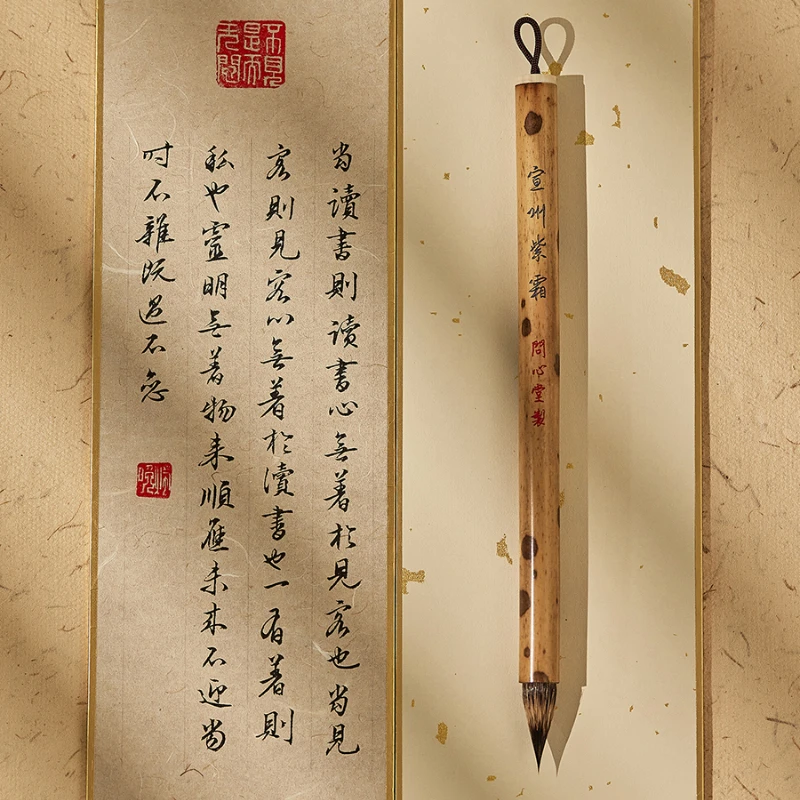 不見是而无悶
當讀書則讀書心無著於見客也當見
客則見客心無著於讀書也一有著則
私也靈明無著物来順應未来不迎當
時不雜既過不戀
宣州紫霜
問心堂製